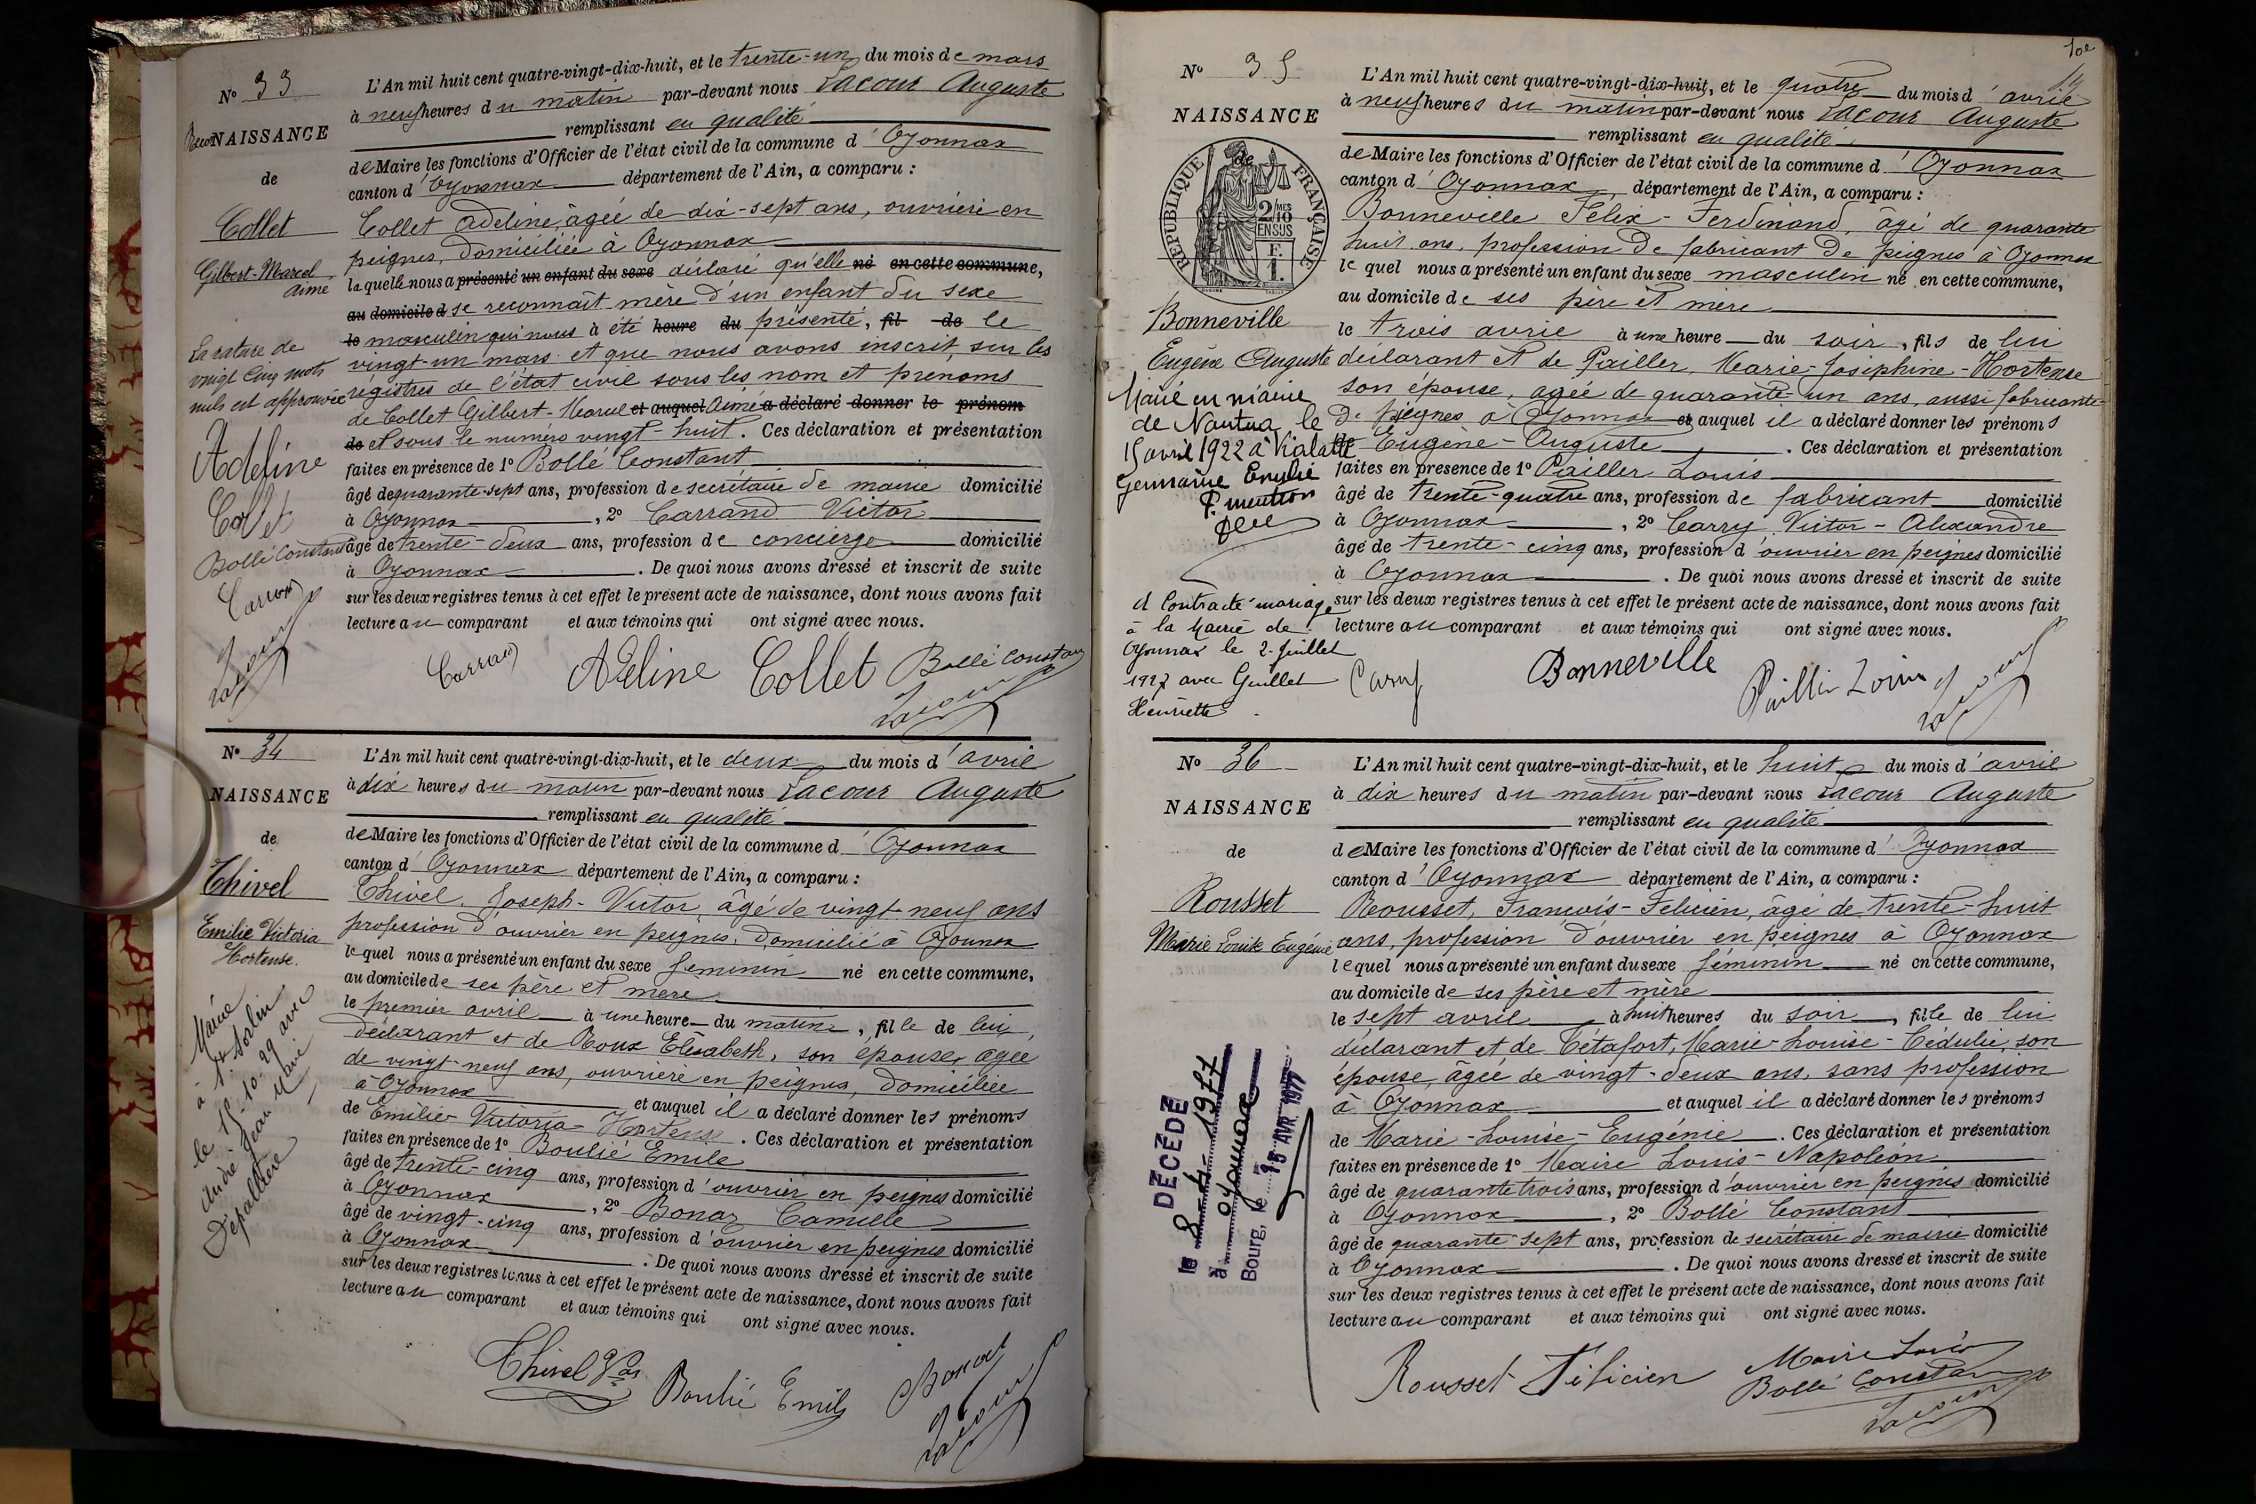 N° 33
L'An mil huit cent quatre-vingt-dix-huit, et le trente-un du mois de mars
à neuf heures du matin par-devant nous Lacour Auguste
remplissant en qualité
Recon NAISSANCE
de Maire les fonctions d'Officier de l'état civil de la commune d'Oyonnax
de
canton d'Oyonnax département de l'Ain, a comparu :
Collet
Collet Adeline, âgée de dix-sept ans, ouvrière en
peignes, domiciliée à Oyonnax
Gilbert-Marcel
Aimé
laquelle nous a présenté un enfant du sexe déclaré qu'elle né en cette commune,
au domicile d se reconnaît mère d'un enfant du sexe
le masculin qui nous à été heure du présenté, fil de le
La rature de
vingt cinq mots
nuls est approuvée
vingt-un mars et que nous avons inscrit, sur les
régistres de l'état civil sous les nom et prénoms
de Collet Gilbert-Marcel et auquel Aimé a déclaré donner le prénom
de et sous le numéro vingt-huit. Ces déclaration et présentation
Adeline
Collet
faites en présence de 1° Bollé Constant
âgé de quarante-sept ans, profession de secrétaire de mairie domicilié
à Oyonnax, 2° Carrand Victor
Bollé Constant
âgé de trente-deux ans, profession de concierge domicilié
à Oyonnax. De quoi nous avons dressé et inscrit de suite
Carrand
sur les deux registres tenus à cet effet le présent acte de naissance, dont nous avons fait
lecture au comparant et aux témoins qui ont signé avec nous.
Lacour
Carrand Adeline Collet Bollé Constant
Lacour
N° 34
L'An mil huit cent quatre-vingt-dix-huit, et le deux du mois d'avril
à dix heures du matin par-devant nous Lacour Auguste
NAISSANCE
remplissant en qualité
de
de Maire les fonctions d'Officier de l'état civil de la commune d'Oyonnax
canton d'Oyonnax département de l'Ain, a comparu :
Chivel
Chivel, Joseph-Victor, âgé de vingt-neuf ans
profession d'ouvrier en peignes, domicilié à Oyonnax
Emilie Victoria
Hortense.
lequel nous a présenté un enfant du sexe féminin né en cette commune,
au domicile de ses père et mère
le premier avril à une heure du matin, fille de lui
déclarant et de Roux Elisabeth, son épouse, agée
de vingt-neuf ans, ouvrière en peignes, domiciliée
à Oyonnax et auquel il a déclaré donner les prénoms
de Emilie-Victoria-Hortense. Ces déclaration et présentation
Mariée
à St Sorlin
le 15-10-29 avec
André Jean Marie
Depallière
faites en présence de 1° Boulié Emile
âgé de trente-cinq ans, profession d'ouvrier en peignes domicilié
à Oyonnax, 2° Bonaz Camille
âgé de vingt-cinq ans, profession d'ouvrier en peignes domicilié
à Oyonnax. De quoi nous avons dressé et inscrit de suite
sur les deux registres tenus à cet effet le présent acte de naissance, dont nous avons fait
lecture au comparant et aux témoins qui ont signé avec nous.
Chivel Boulié Emile Bonaz
Lacour
10e
N° 35
L'An mil huit cent quatre-vingt-dix-huit, et le quatre du mois d'avril
à neuf heures du matin par-devant nous Lacour Auguste
NAISSANCE
remplissant en qualité
de
de Maire les fonctions d'Officier de l'état civil de la commune d'Oyonnax
canton d'Oyonnax, département de l'Ain, a comparu :
RÉPUBLIQUE FRANÇAISE
2/10MES EN SUS
1 F.
Bonneville Félix-Ferdinand, âgé de quarante
huit ans, profession de fabricant de peignes à Oyonnax
lequel nous a présenté un enfant du sexe masculin né en cette commune,
au domicile de ses père et mère
Bonneville
le trois avril à une heure du soir, fils de lui
Eugène Auguste
déclarant et de Pailler, Marie-Joséphine-Hortense
son épouse, agée de quarante-un ans, aussi fabricante
de peignes à Oyonnax et auquel il a déclaré donner les prénoms
de Eugène-Auguste. Ces déclaration et présentation
Marié en mairie
de Nantua le
15 avril 1922 à Vialatte
Germaine Emilie
P. mention
faites en présence de 1° Pailler Louis
âgé de trente-quatre ans, profession de fabricant domicilié
à Oyonnax, 2° Carry Victor-Alexandre
âgé de trente-cinq ans, profession d'ouvrier en peignes domicilié
à Oyonnax. De quoi nous avons dressé et inscrit de suite
sur les deux registres tenus à cet effet le présent acte de naissance, dont nous avons fait
lecture au comparant et aux témoins qui ont signé avec nous.
A Contracté mariage
à la Mairie de
Oyonnax le 2 Juillet
1927 avec Guillet
Henriette
Carry Bonneville Paillier Louis
Lacour
N° 36
L'An mil huit cent quatre-vingt-dix-huit, et le huit du mois d'avril
à dix heures du matin par-devant nous Lacour Auguste
NAISSANCE
remplissant en qualité
de
de Maire les fonctions d'Officier de l'état civil de la commune d'Oyonnax
canton d'Oyonnax département de l'Ain, a comparu :
Rousset
Rousset, François-Félicien, âgé de trente-huit
Marie Louise Eugénie
ans, profession d'ouvrier en peignes à Oyonnax
lequel nous a présenté un enfant du sexe féminin né en cette commune,
au domicile de ses père et mère
le sept avril à huit heures du soir, fille de lui
déclarant et de Tétafort, Marie-Louise-Cédulie, son
épouse, âgée de vingt-deux ans, sans profession
à Oyonnax et auquel il a déclaré donner les prénoms
de Marie-Louise-Eugénie. Ces déclaration et présentation
DÉCÉDÉ
le 8-4-1977
à Oyonnax
Bourg, le 15 AVR 1977
faites en présence de 1° Maire Louis-Napoléon
âgé de quarante trois ans, profession d'ouvrier en peignes domicilié
à Oyonnax, 2° Bollé Constant
âgé de quarante-sept ans, profession de secrétaire de mairie domicilié
à Oyonnax. De quoi nous avons dressé et inscrit de suite
sur les deux registres tenus à cet effet le présent acte de naissance, dont nous avons fait
lecture au comparant et aux témoins qui ont signé avec nous.
Rousset Félicien Maire Louis
Bollé Constant
Lacour